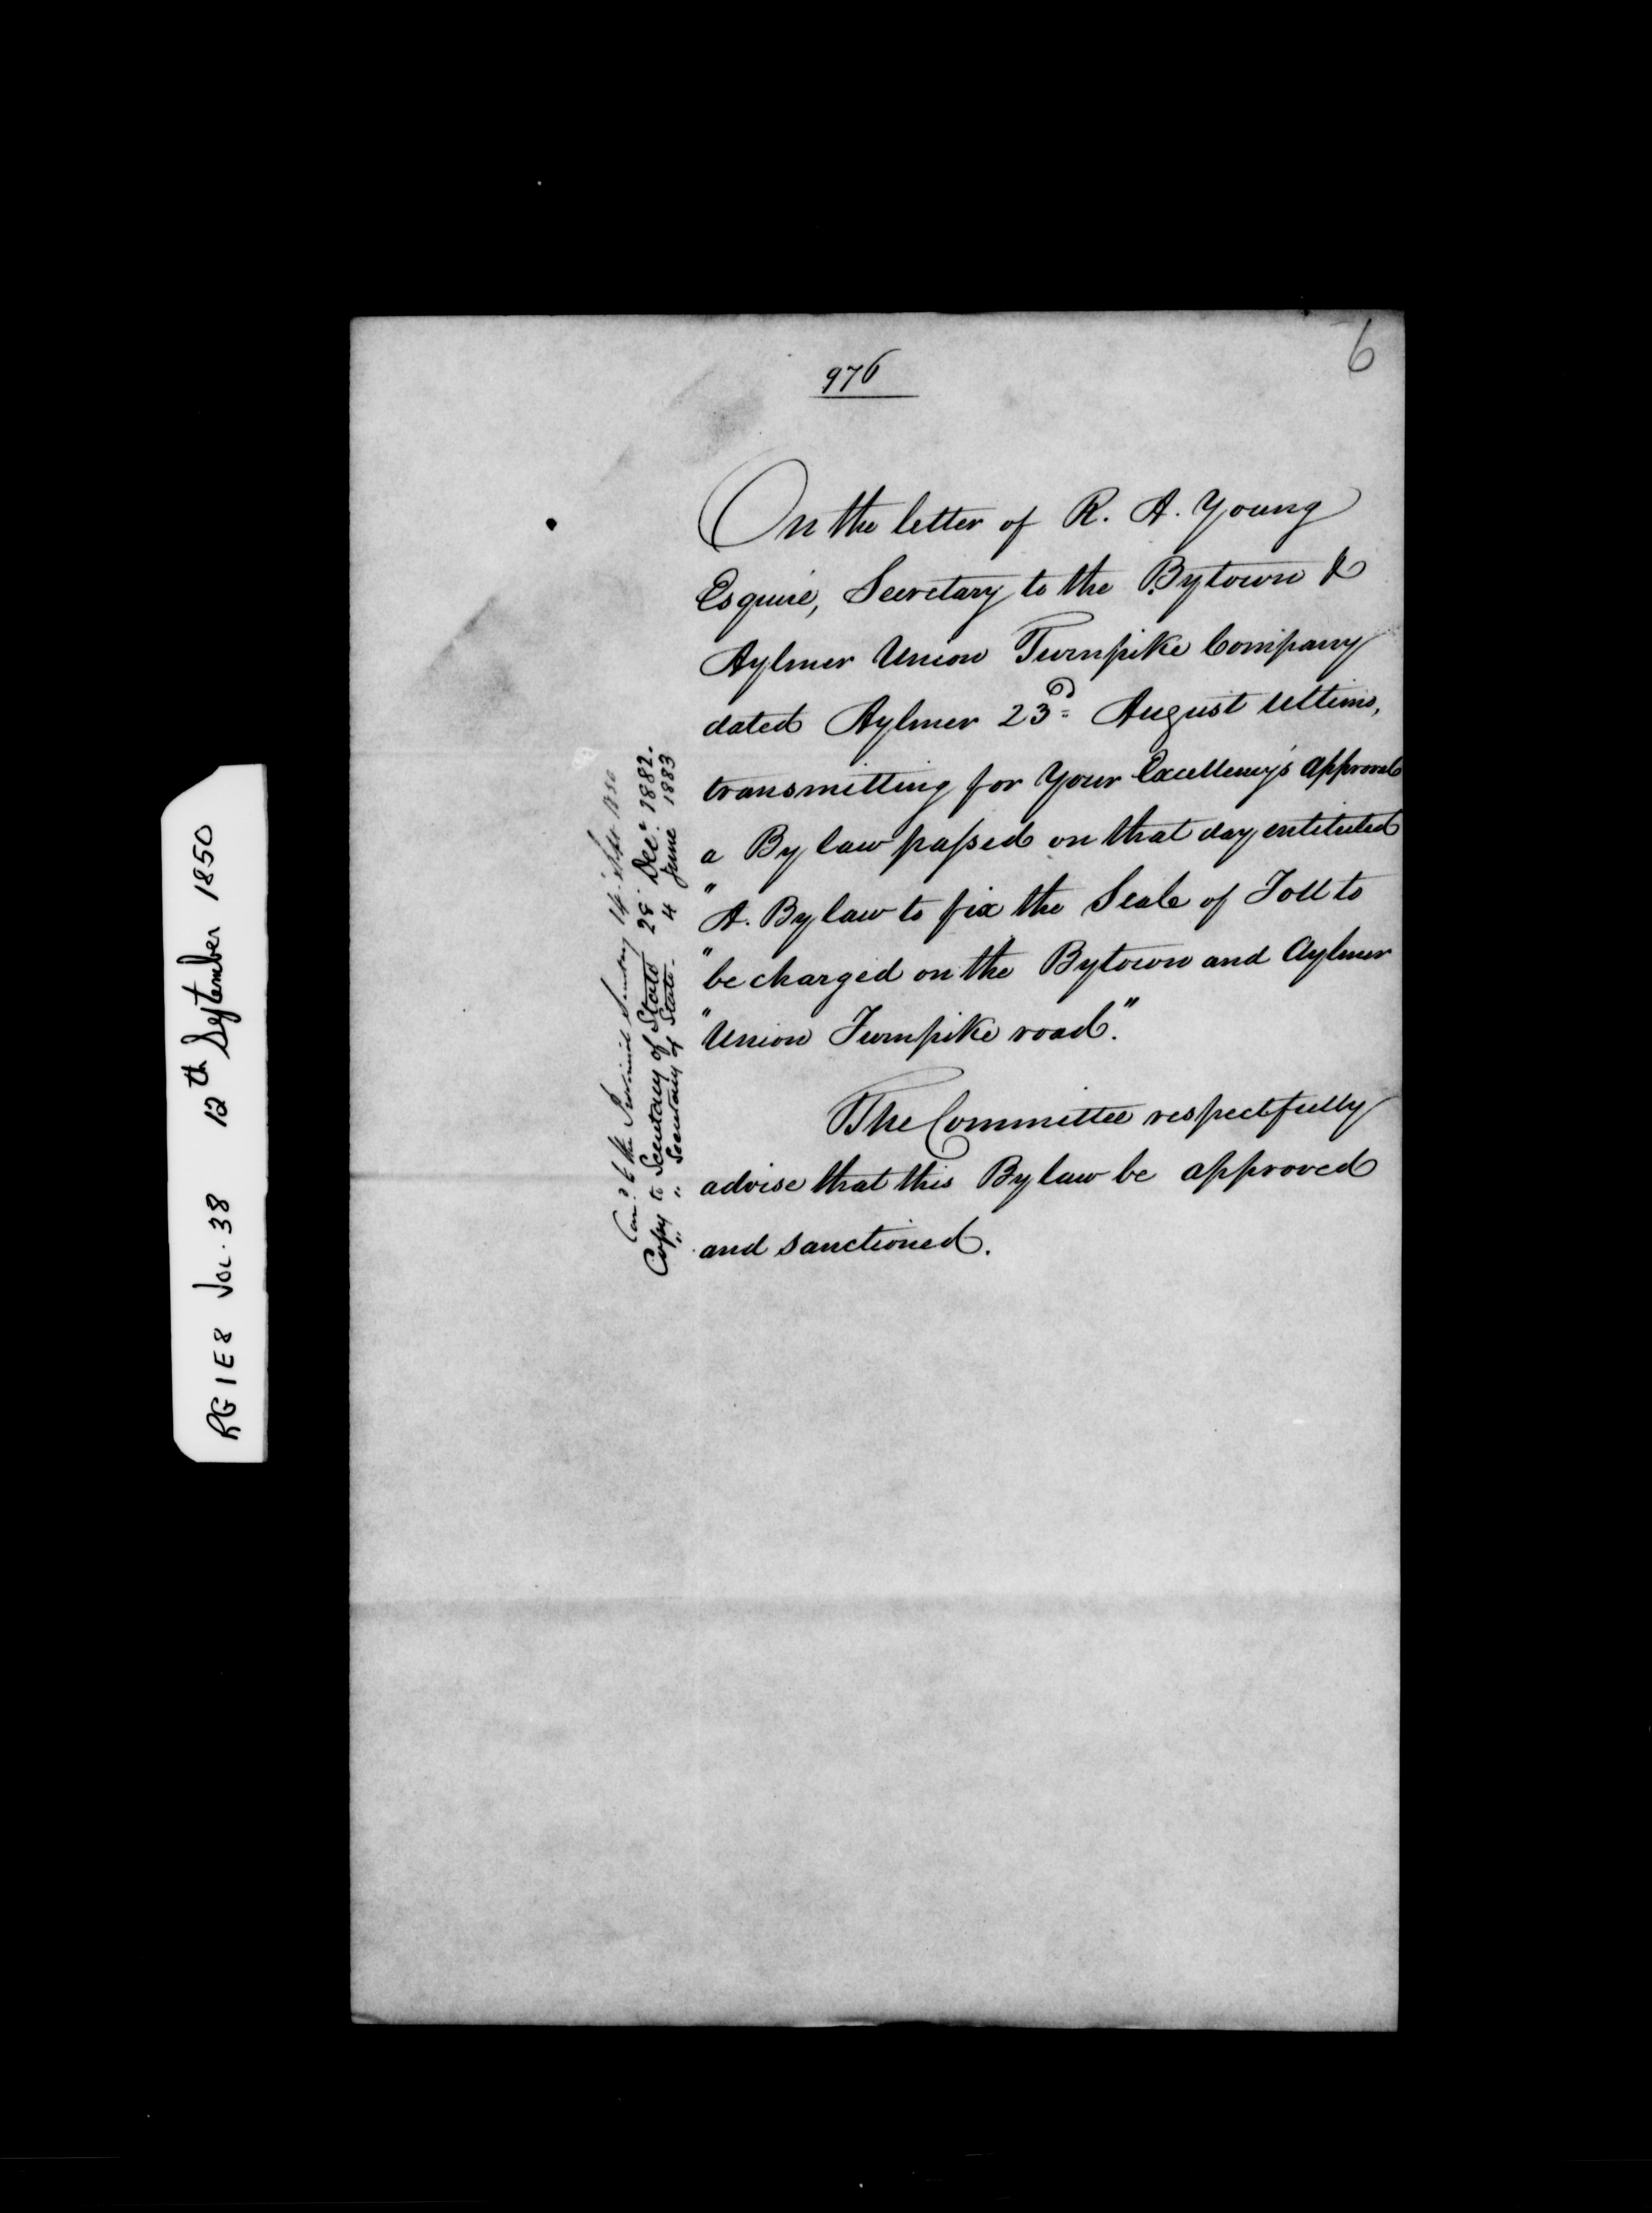 976
6
On the letter of R. A. Young
Esquire, Secretary to the Bytown &
Aylmer Union Turnpike Company
dated Aylmer 23d August ultimo,
transmitting for Your Excellency's approval
a By law passed on that day, entituled
"A. By law to fix the Scale of Toll to
"be charged on the Bytown and Aylmer
"Union Turnpike road".
The Committee respectfully
advise that this By law be approved
and sanctioned.
to the Provincial Secretary 14 Sept 1850
Copy to Secretary of State 28 Decr 1882.
" " Secretary of State - 4 June 1883
RG 1 E 8 Vol. 38 12th September 1850